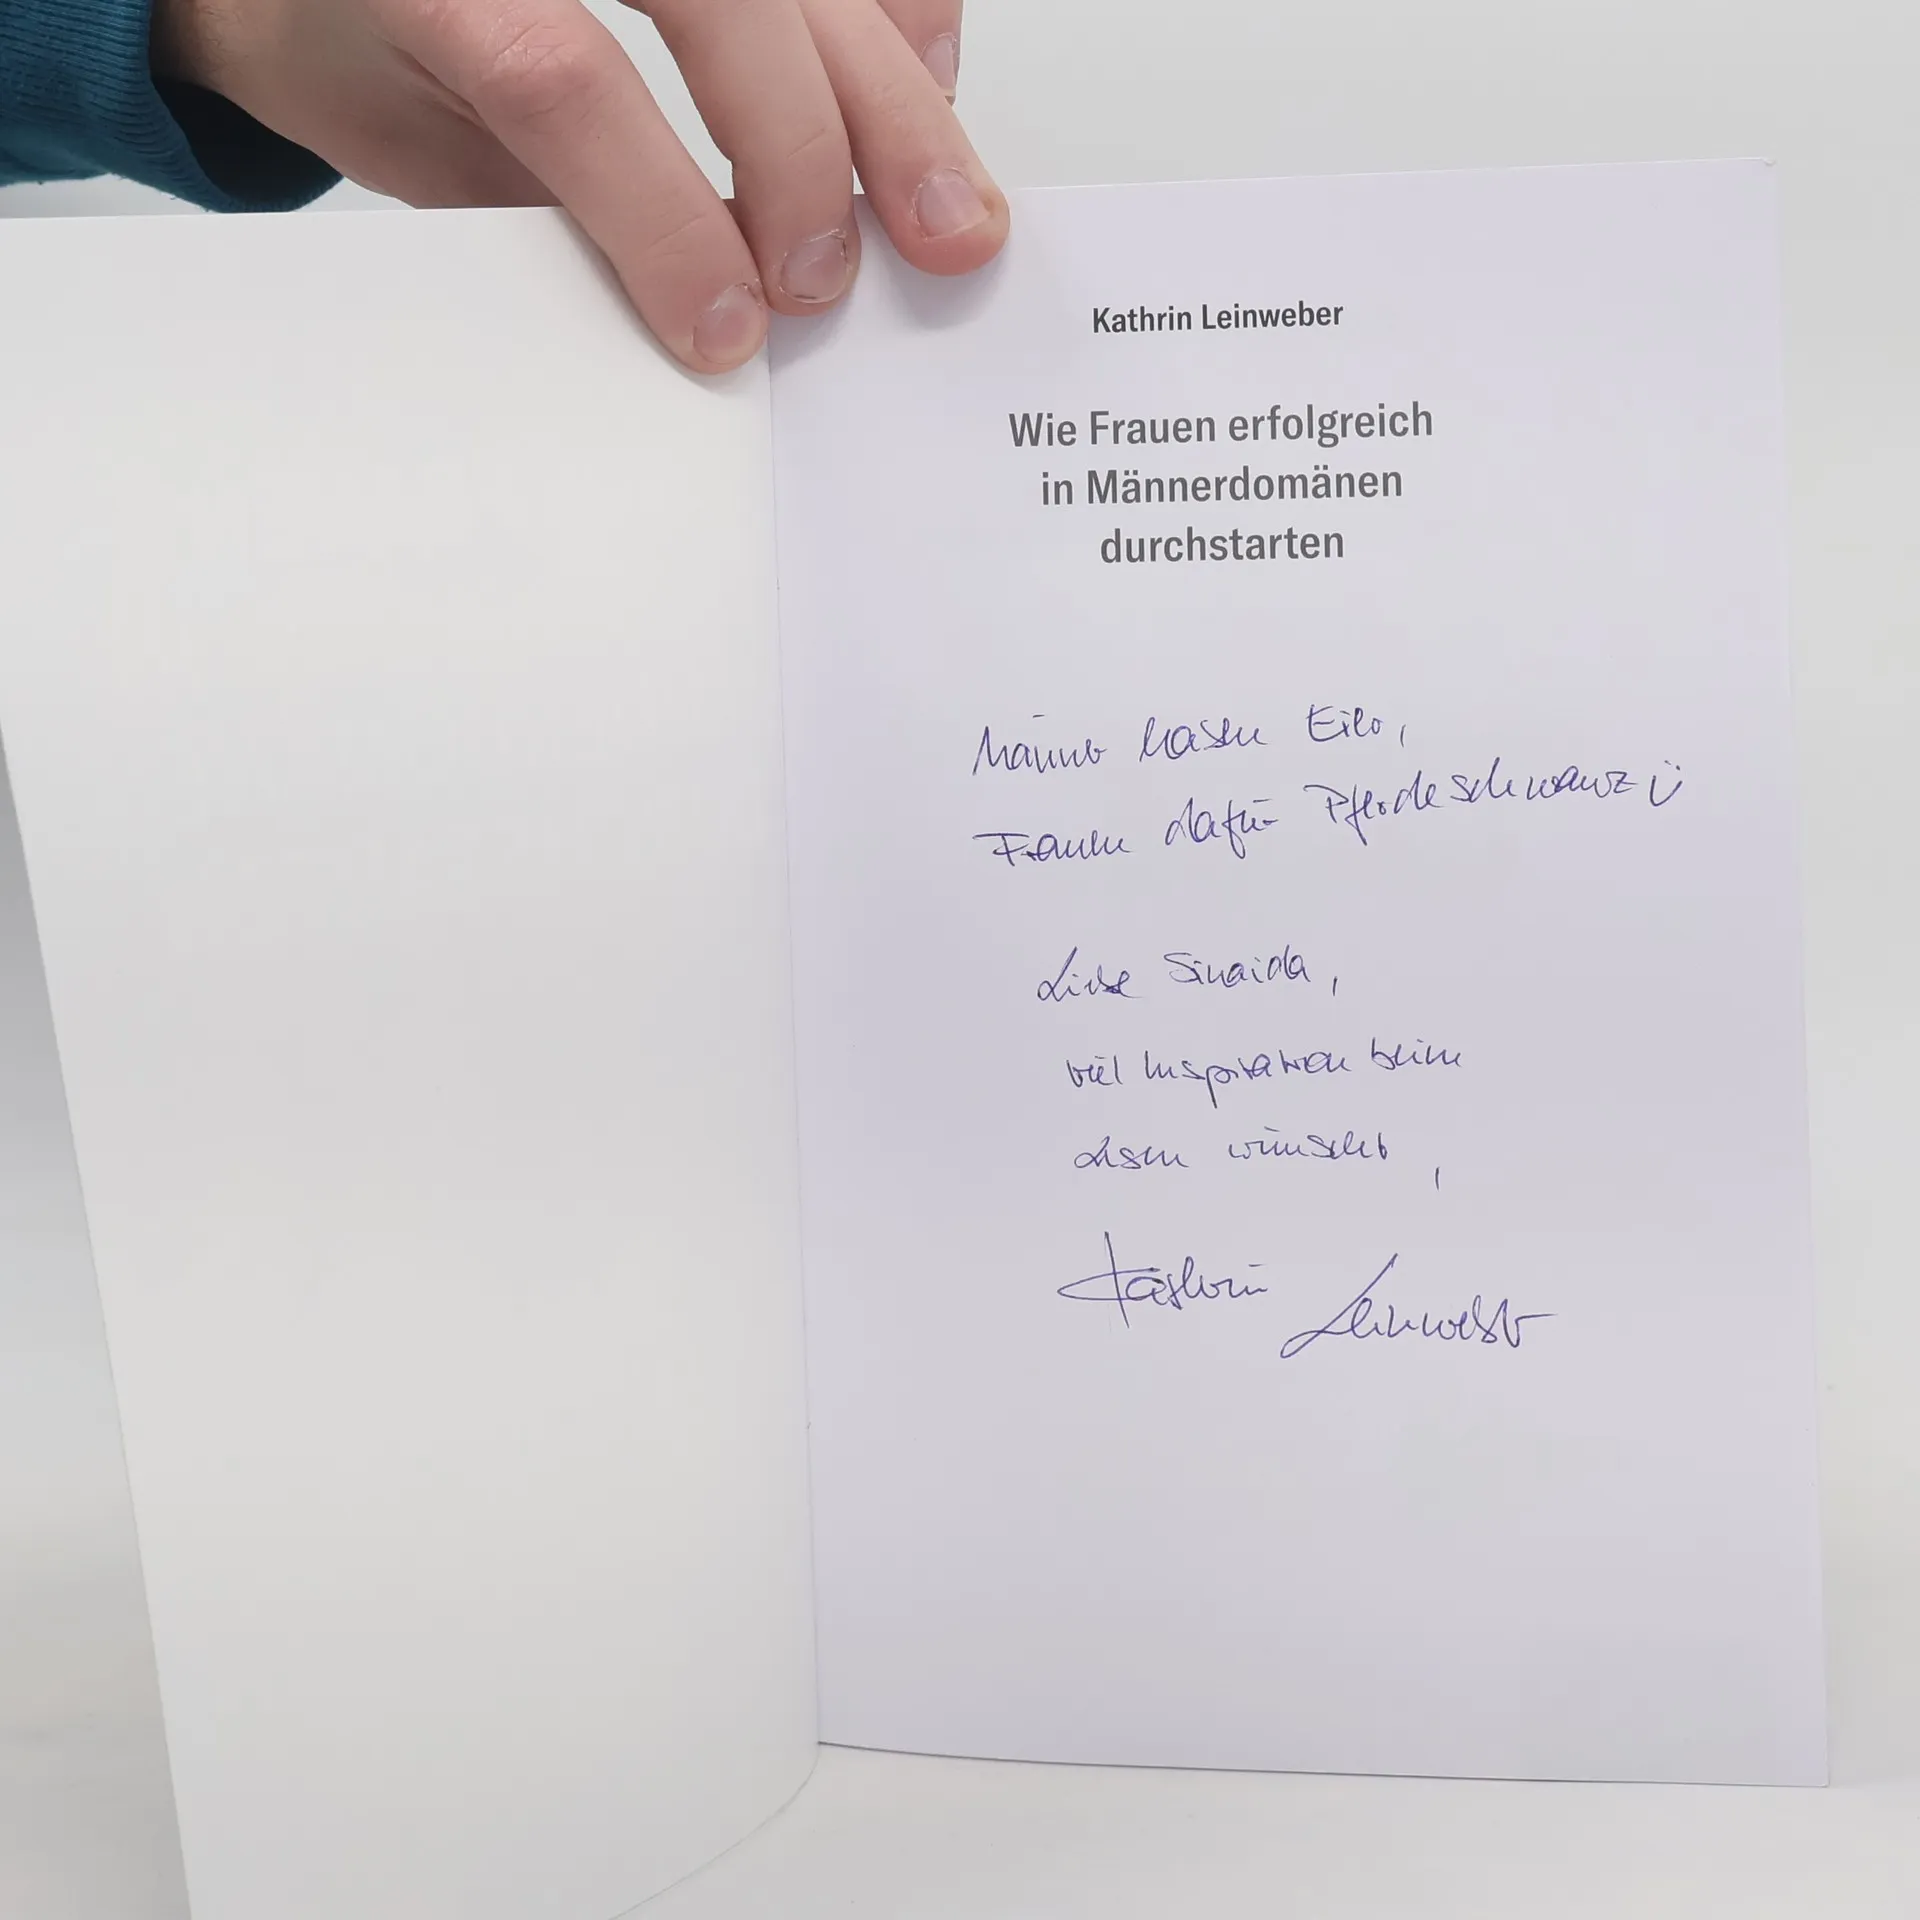 Kathrin Leinweber
Wie Frauen erfolgreich
in Männerdomänen
durchstarten
Männer Eier,
Frauen dafür Pferdeschwanz ü
Liebe Sinaida,
viel Inspiration beim
Lesen wünscht,
Kathrin Leinweber